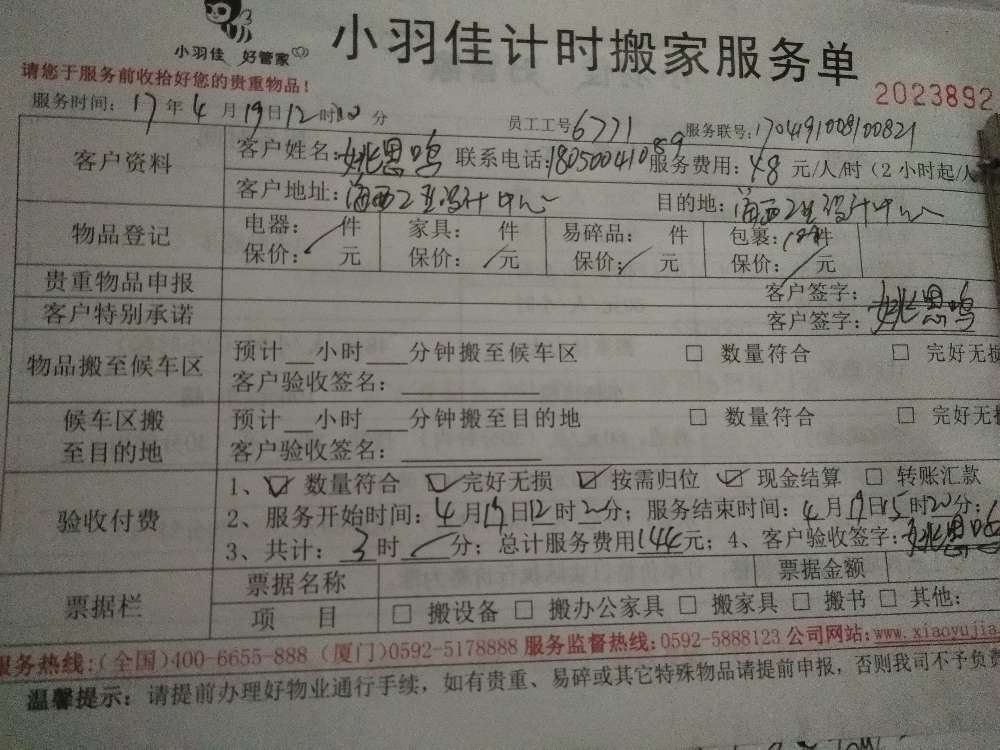 小羽佳 好管家
小羽佳计时搬家服务单
请您于服务前收拾好您的贵重物品!
2023892
服务时间: 17年4月19日12时20分 员工工号6771 服务联号:1704191008100821
客户资料
客户姓名:姚思鸣 联系电话:18050041089 服务费用:48元/人/时(2小时起/人
客户地址:海西工业设计中心 目的地:海西工业设计中心
物品登记
电器: 件 家具: 件 易碎品: 件 包裹: 件
保价: 元 保价: 元 保价: 元 保价: 元
贵重物品申报 客户签字:
客户特别承诺 客户签字:姚思鸣
物品搬至候车区
预计__小时___分钟搬至候车区 □ 数量符合 □ 完好无损
客户验收签名:
候车区搬
至目的地
预计__小时___分钟搬至目的地 □ 数量符合 □ 完好无损
客户验收签名:
验收付费
1、☑ 数量符合 ☑ 完好无损 ☑ 按需归位 ☑ 现金结算 □ 转账汇款
2、服务开始时间:4月19日12时20分;服务结束时间:4月19日15时20分;
3、共计:3时 分;总计服务费用144元;4、客户验收签字:姚思鸣
票据栏
票据名称 票据金额
项 目 □ 搬设备 □ 搬办公家具 □ 搬家具 □ 搬书 □ 其他:
服务热线:(全国)400-6655-888 (厦门)0592-5178888 服务监督热线:0592-5888123 公司网站:www.xiaoyujia
温馨提示:请提前办理好物业通行手续,如有贵重、易碎或其它特殊物品请提前申报,否则我司不予负责